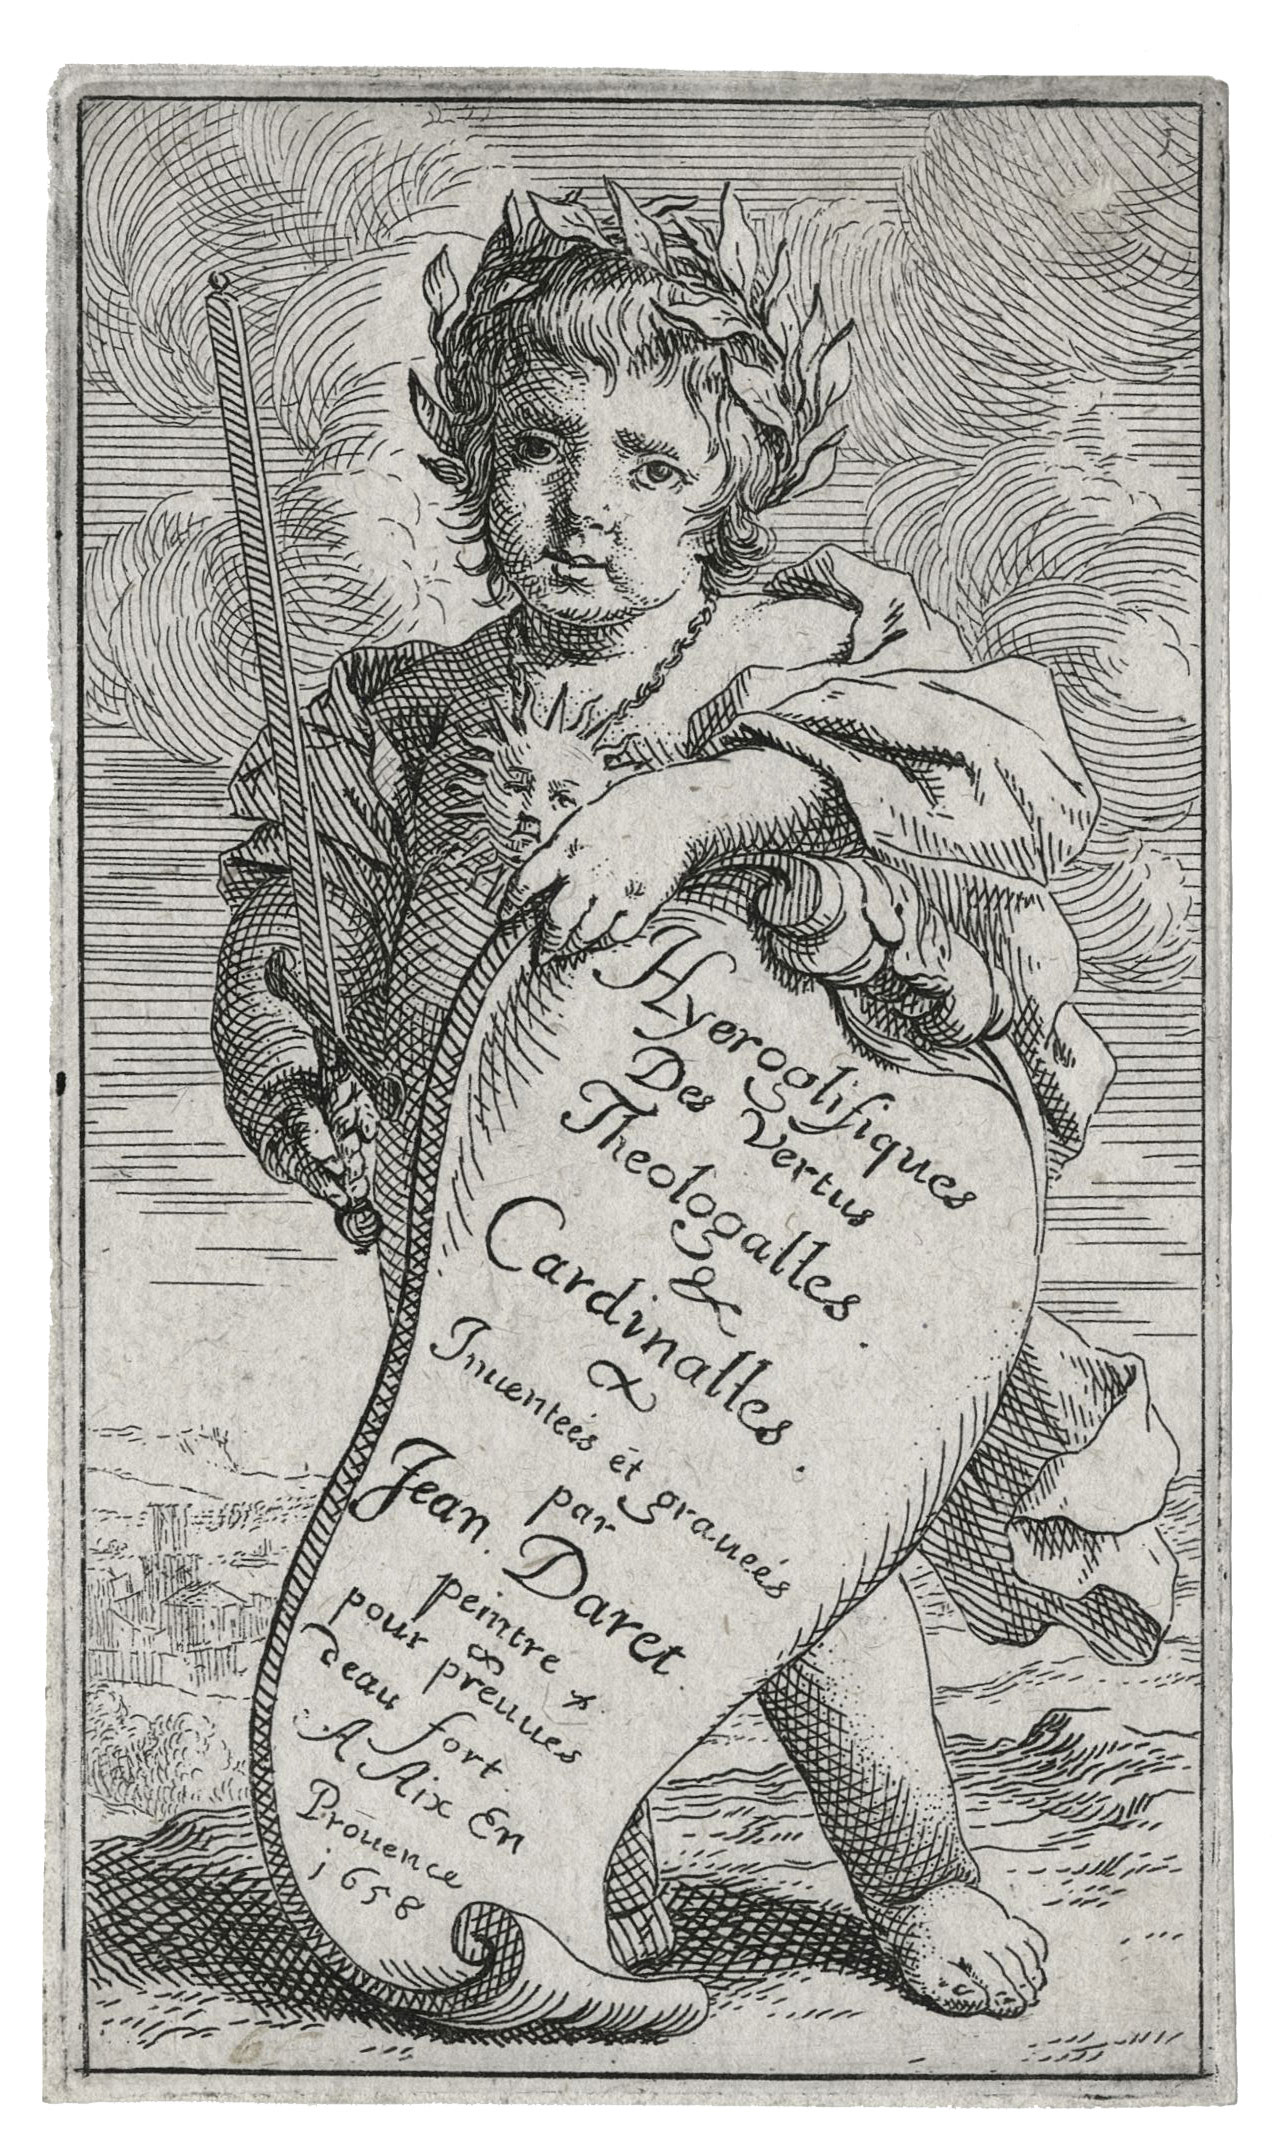 Hyeroglifiques
Des Vertus
Theologalles.
&
Cardinalles.
Inuenteés ét graueés
par
Jean. Daret
peintre
pour preuues
deau fort.
A Aix En
Prōuence
1658